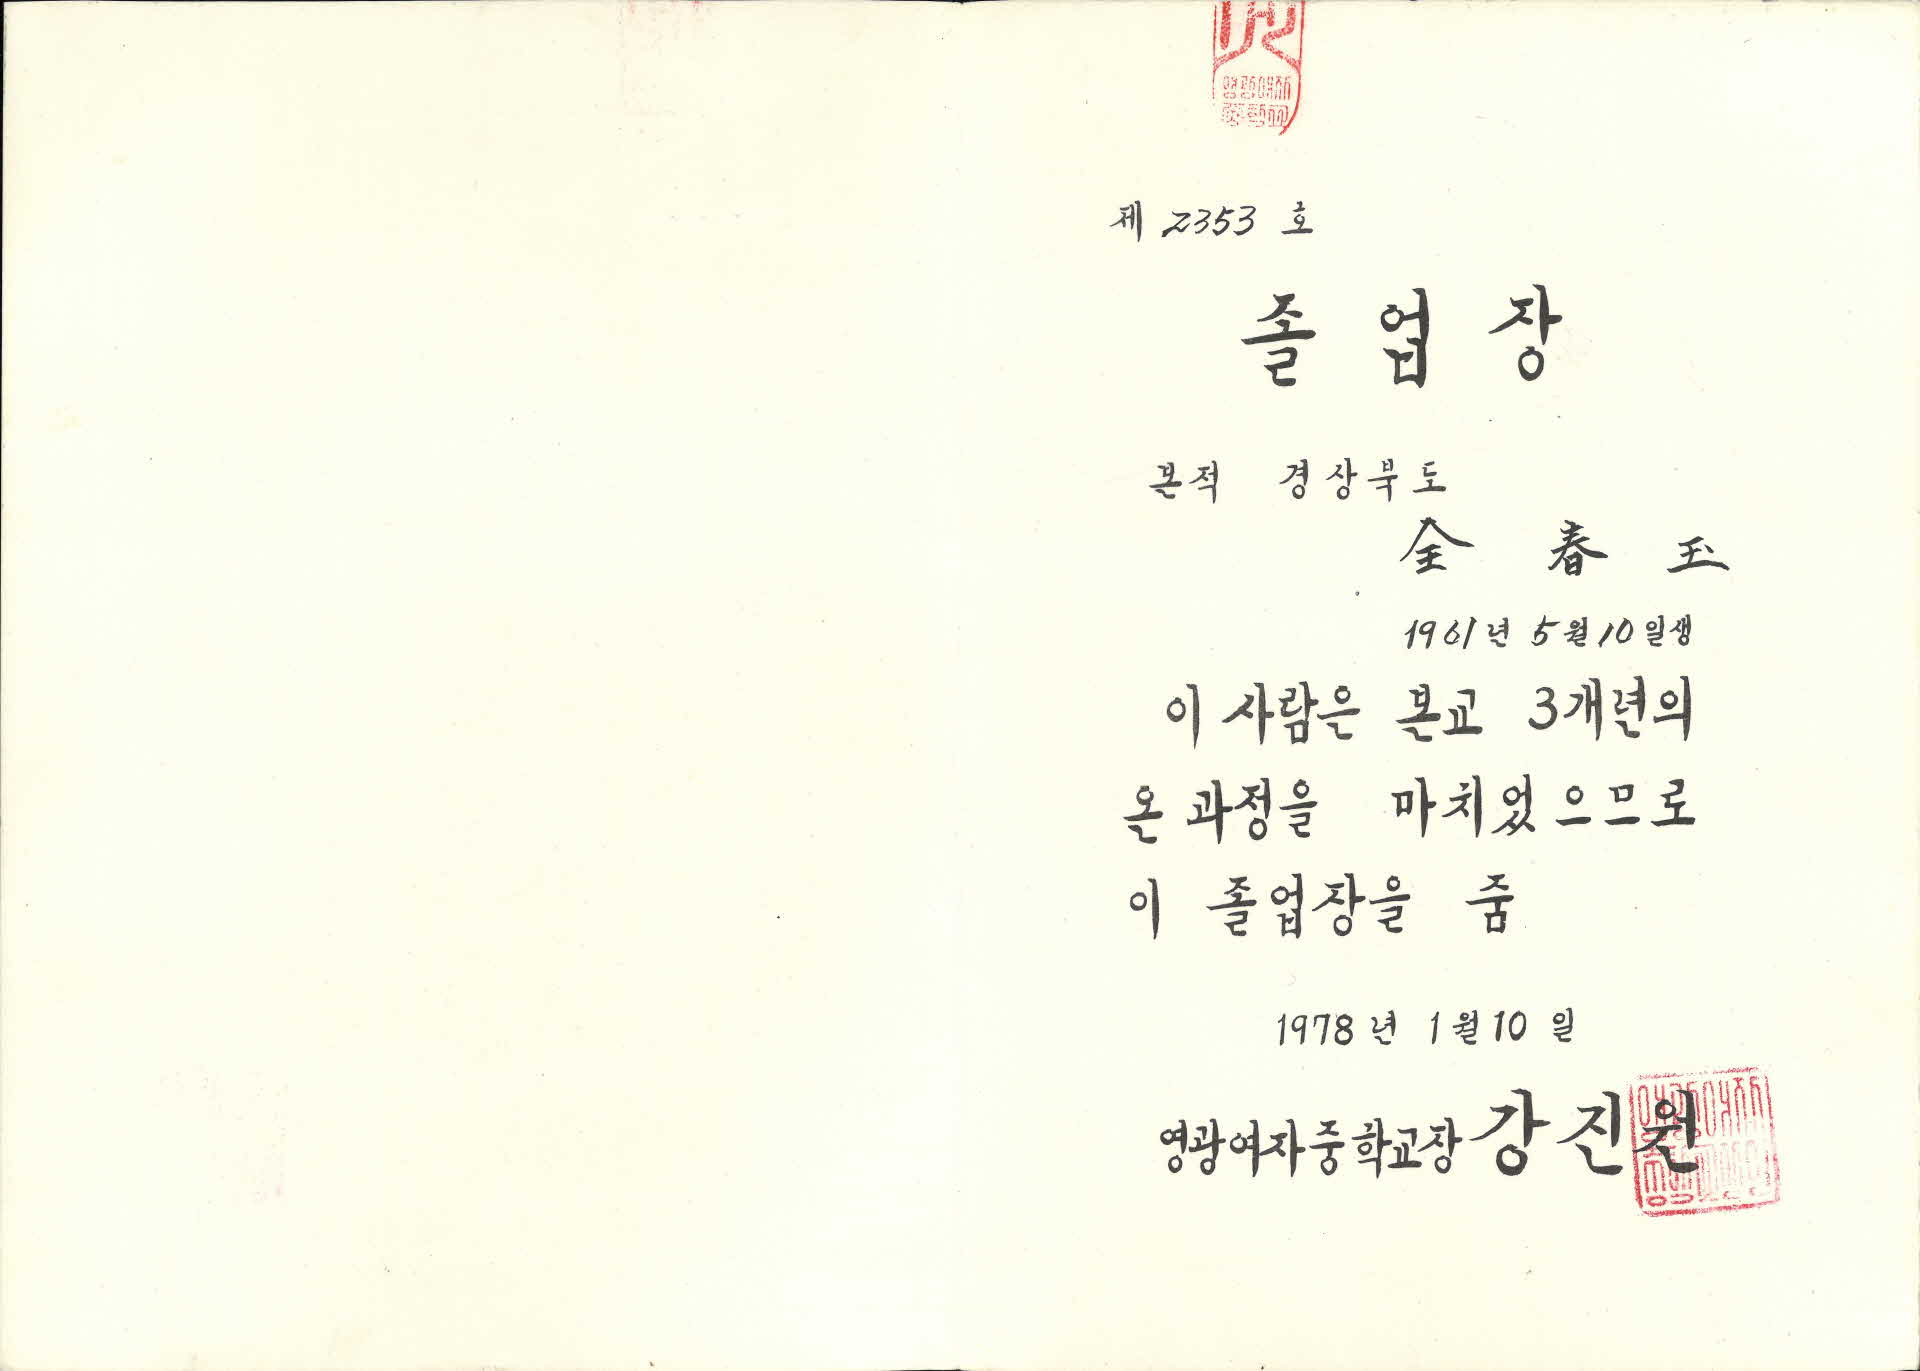 영광여자
중학교
제 2353 호
졸업장
본적 경상북도
全春玉
1961년 5월 10일생
이 사람은 본교 3개년의
온 과정을 마치었으므로
이 졸업장을 줌
1978년 1월 10일
영광여자중학교장 강진원